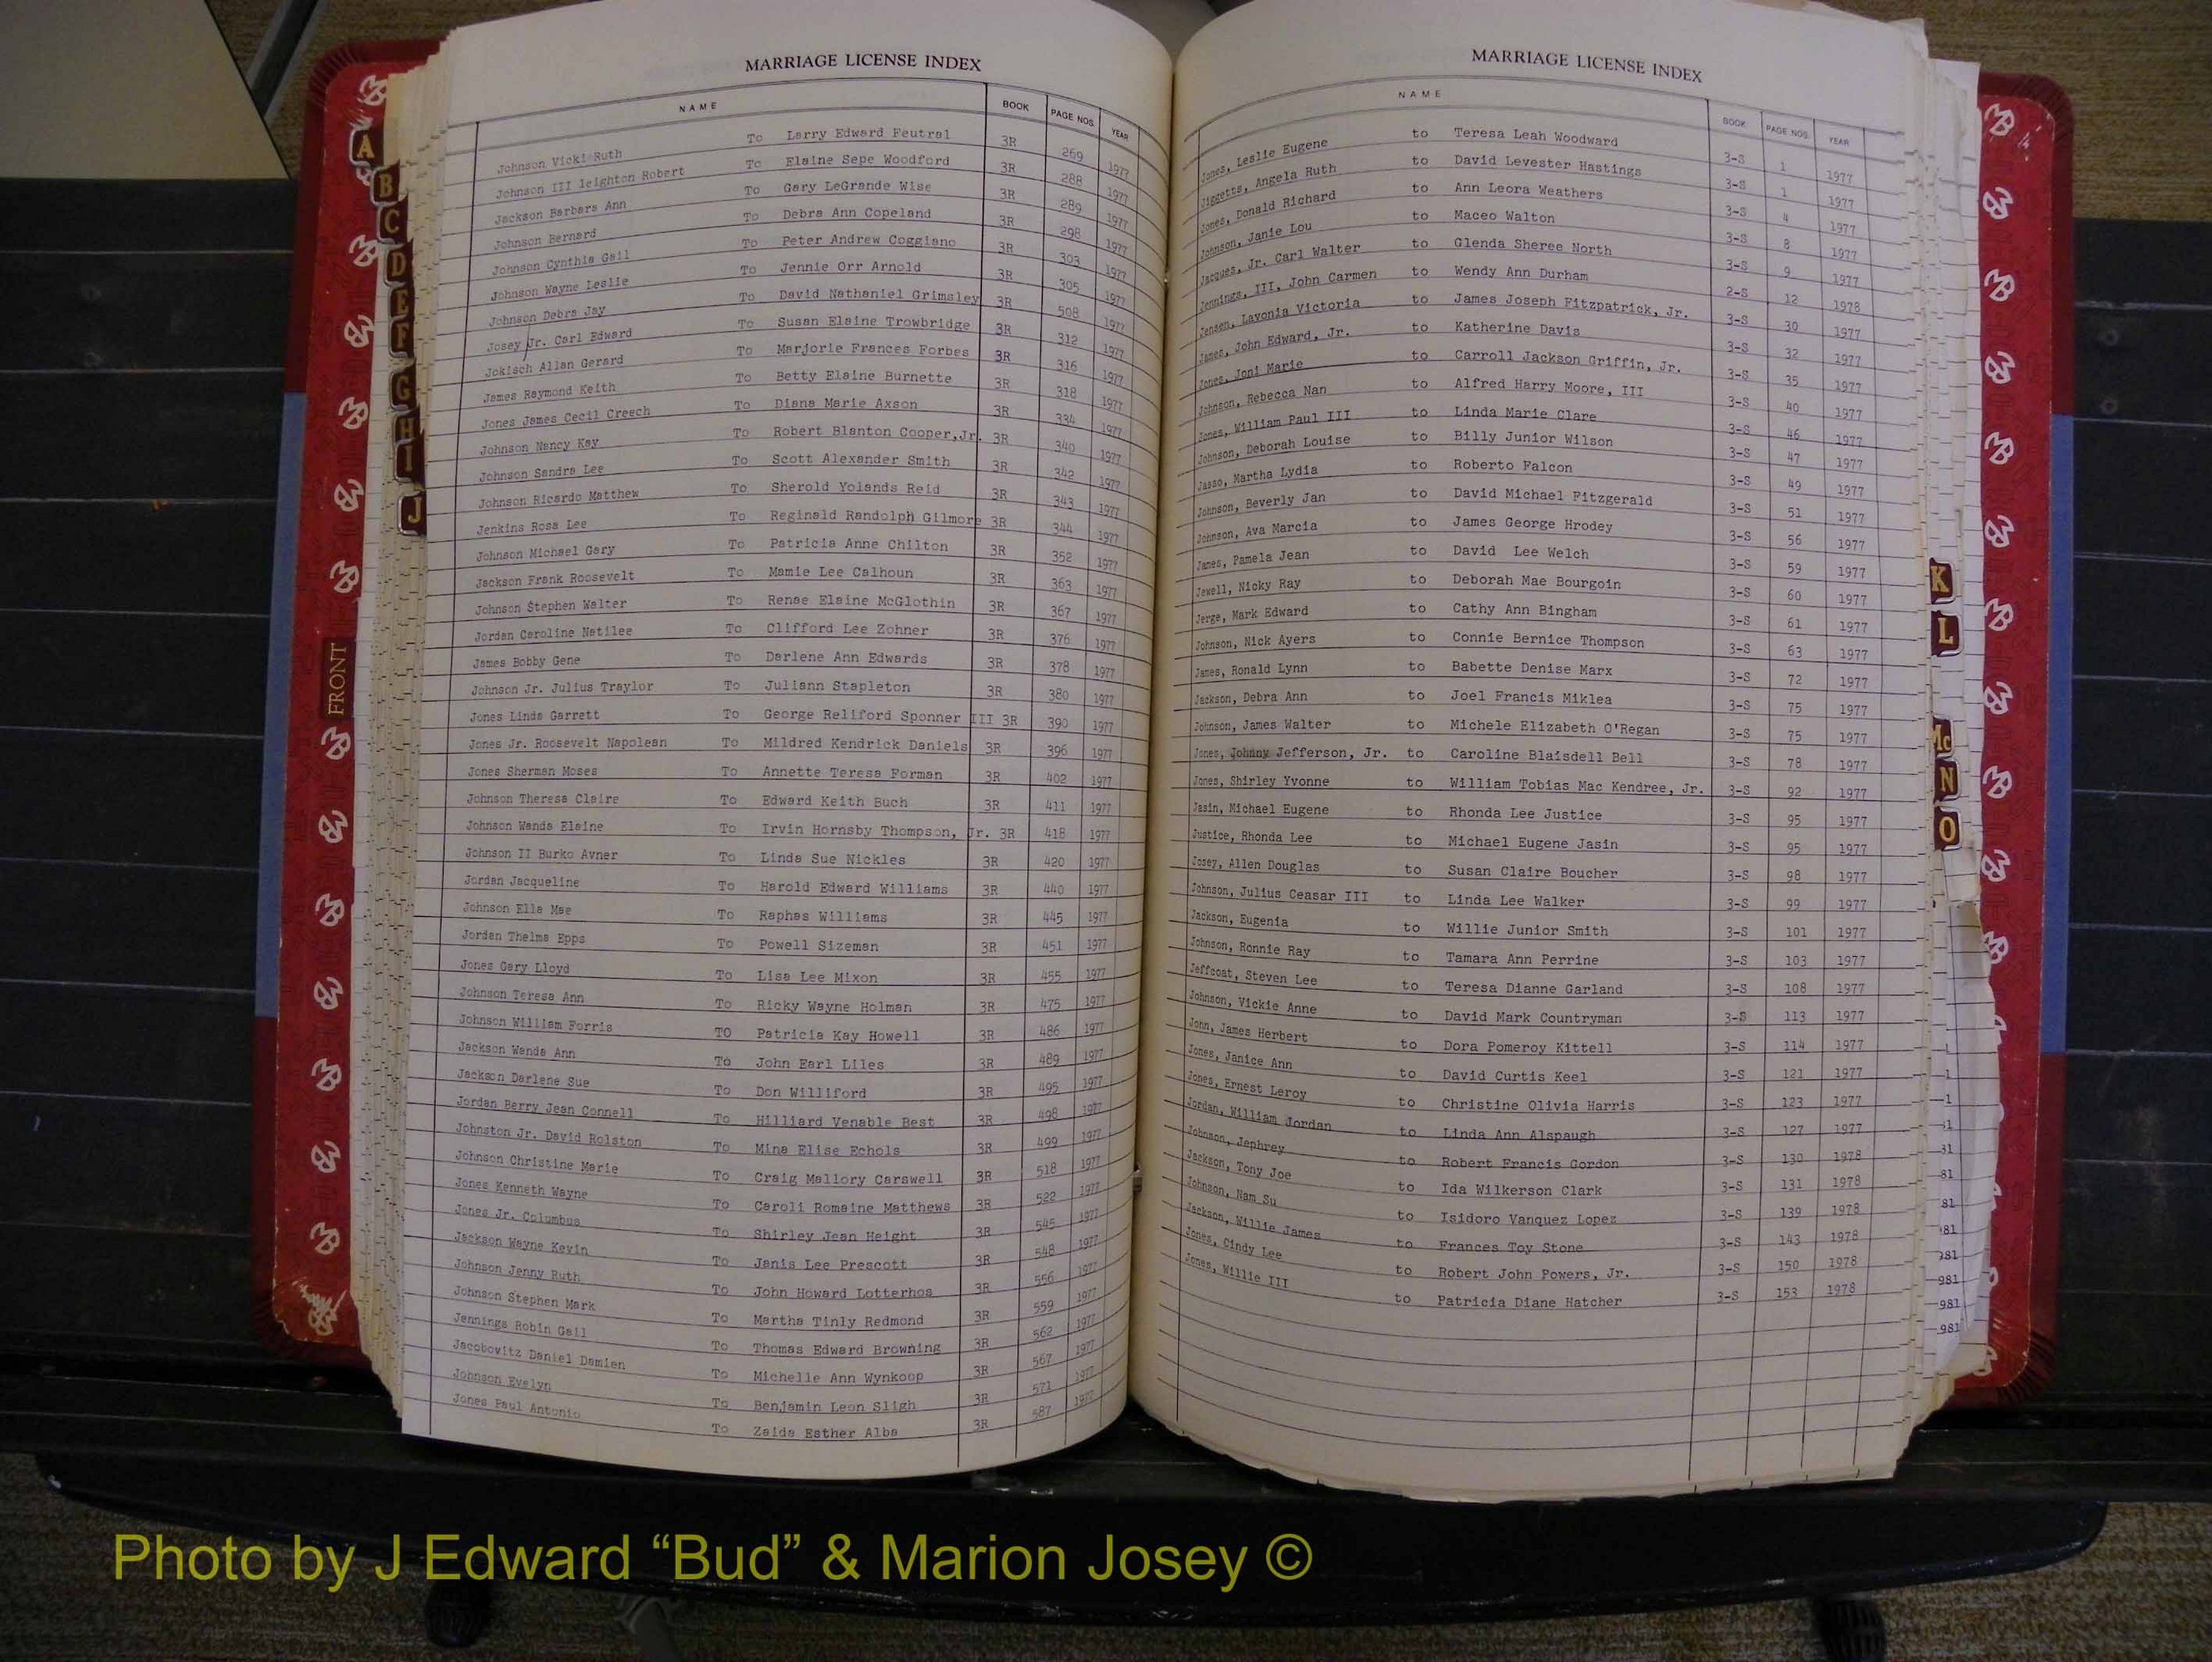 MARRIAGE LICENSE INDEX
NAME BOOK PAGE NOS. YEAR
Johnson Vicki Ruth To Larry Edward Feutral 3R 269 1977
Johnson III leighton Robert To Elaine Sepe Woodford 3R 288 1977
Jackson Barbara Ann To Gary LeGrande Wise 3R 289 1977
Johnson Bernard To Debra Ann Copeland 3R 298 1977
Johnson Cynthia Gail To Peter Andrew Coggiano 3R 303 1977
Johnson Wayne Leslie To Jennie Orr Arnold 3R 305 1977
Johnson Debra Jay To David Nathaniel Grimsley 3R 508 1977
Josey Jr. Carl Edward To Susan Elaine Trowbridge 3R 312 1977
Jokisch Allan Gerard To Marjorie Frances Forbes 3R 316 1977
James Raymond Keith To Betty Elaine Burnette 3R 318 1977
Jones James Cecil Creech To Diana Marie Axson 3R 334 1977
Johnson Nancy Kay To Robert Blanton Cooper,Jr. 3R 340 1977
Johnson Sandra Lee To Scott Alexander Smith 3R 342 1977
Johnson Ricardo Matthew To Sherold Yolands Reid 3R 343 1977
Jenkins Rosa Lee To Reginald Randolph Gilmore 3R 344 1977
Johnson Michael Gary To Patricia Anne Chilton 3R 352 1977
Jackson Frank Roosevelt To Mamie Lee Calhoun 3R 363 1977
Johnson Stephen Walter To Renae Elaine McGlothin 3R 367 1977
Jordan Caroline Natilee To Clifford Lee Zohner 3R 376 1977
James Bobby Gene To Darlene Ann Edwards 3R 378 1977
Johnson Jr. Julius Traylor To Juliann Stapleton 3R 380 1977
Jones Linda Garrett To George Reliford Sponner III 3R 390 1977
Jones Jr. Roosevelt Napolean To Mildred Kendrick Daniels 3R 396 1977
Jones Sherman Moses To Annette Teresa Forman 3R 402 1977
Johnson Theresa Claire To Edward Keith Buch 3R 411 1977
Johnson Wanda Elaine To Irvin Hornsby Thompson, Jr. 3R 418 1977
Johnson II Burko Avner To Linda Sue Nickles 3R 420 1977
Jordan Jacqueline To Harold Edward Williams 3R 440 1977
Johnson Ella Mae To Raphas Williams 3R 445 1977
Jordan Thelma Epps To Powell Sizeman 3R 451 1977
Jones Gary Lloyd To Lisa Lee Mixon 3R 455 1977
Johnson Teresa Ann To Ricky Wayne Holman 3R 475 1977
Johnson William Forris TO Patricia Kay Howell 3R 486 1977
Jackson Wanda Ann To John Earl Liles 3R 489 1977
Jackson Darlene Sue To Don Williford 3R 495 1977
Jordan Berry Jean Connell To Hilliard Venable Best 3R 498 1977
Johnston Jr. David Rolston To Mina Elise Echols 3R 499 1977
Johnson Christine Marie To Craig Mallory Carswell 3R 518 1977
Jones Kenneth Wayne To Caroli Romaine Matthews 3R 522 1977
Jones Jr. Columbus To Shirley Jean Height 3R 545 1977
Jackson Wayne Kevin To Janis Lee Prescott 3R 548 1977
Johnson Jenny Ruth To John Howard Lotterhos 3R 556 1977
Johnson Stephen Mark To Martha Tinly Redmond 3R 559 1977
Jennings Robin Gail To Thomas Edward Browning 3R 562 1977
Jacobovitz Daniel Damien To Michelle Ann Wynkoop 3R 567 1977
Johnson Evelyn To Benjamin Leon Sligh 3R 571 1977
Jones Paul Antonio To Zaida Esther Alba 3R 587 1977
MARRIAGE LICENSE INDEX
NAME BOOK PAGE NOS. YEAR
Jones, Leslie Eugene to Teresa Leah Woodward 3-S 1 1977
Jiggetts, Angela Ruth to David Levester Hastings 3-S 1 1977
Jones, Donald Richard to Ann Leora Weathers 3-S 4 1977
Johnson, Janie Lou to Maceo Walton 3-S 8 1977
Jacques, Jr. Carl Walter to Glenda Sheree North 3-S 9 1977
Jennings, III, John Carmen to Wendy Ann Durham 2-S 12 1978
Jensen, Lavonia Victoria to James Joseph Fitzpatrick, Jr. 3-S 30 1977
James, John Edward, Jr. to Katherine Davis 3-S 32 1977
Jones, Joni Marie to Carroll Jackson Griffin, Jr. 3-S 35 1977
Johnson, Rebecca Nan to Alfred Harry Moore, III 3-S 40 1977
Jones, William Paul III to Linda Marie Clare 3-S 46 1977
Johnson, Deborah Louise to Billy Junior Wilson 3-S 47 1977
Jasso, Martha Lydia to Roberto Falcon 3-S 49 1977
Johnson, Beverly Jan to David Michael Fitzgerald 3-S 51 1977
Johnson, Ava Marcia to James George Hrodey 3-S 56 1977
James, Pamela Jean to David Lee Welch 3-S 59 1977
Jewell, Nicky Ray to Deborah Mae Bourgoin 3-S 60 1977
Jerge, Mark Edward to Cathy Ann Bingham 3-S 61 1977
Johnson, Nick Ayers to Connie Bernice Thompson 3-S 63 1977
James, Ronald Lynn to Babette Denise Marx 3-S 72 1977
Jackson, Debra Ann to Joel Francis Miklea 3-S 75 1977
Johnson, James Walter to Michele Elizabeth O'Regan 3-S 75 1977
Jones, Johnny Jefferson, Jr. to Caroline Blaisdell Bell 3-S 78 1977
Jones, Shirley Yvonne to William Tobias Mac Kendree, Jr. 3-S 92 1977
Jasin, Michael Eugene to Rhonda Lee Justice 3-S 95 1977
Justice, Rhonda Lee to Michael Eugene Jasin 3-S 95 1977
Josey, Allen Douglas to Susan Claire Boucher 3-S 98 1977
Johnson, Julius Ceasar III to Linda Lee Walker 3-S 99 1977
Jackson, Eugenia to Willie Junior Smith 3-S 101 1977
Johnson, Ronnie Ray to Tamara Ann Perrine 3-S 103 1977
Jeffcoat, Steven Lee to Teresa Dianne Garland 3-S 108 1977
Johnson, Vickie Anne to David Mark Countryman 3-S 113 1977
John, James Herbert to Dora Pomeroy Kittell 3-S 114 1977
Jones, Janice Ann to David Curtis Keel 3-S 121 1977
Jones, Ernest Leroy to Christine Olivia Harris 3-S 123 1977
Jordan, William Jordan to Linda Ann Alspaugh 3-S 127 1977
Johnson, Jephrey to Robert Francis Gordon 3-S 130 1978
Jackson, Tony Joe to Ida Wilkerson Clark 3-S 131 1978
Johnson, Nam Su to Isidoro Vanquez Lopez 3-S 139 1978
Jackson, Willie James to Frances Toy Stone 3-S 143 1978
Jones, Cindy Lee to Robert John Powers, Jr. 3-S 150 1978
Jones, Willie III to Patricia Diane Hatcher 3-S 153 1978
A
B
C
D
E
F
G
H
I
J
FRONT
K
L
Mc
N
O
Photo by J Edward “Bud” & Marion Josey ©